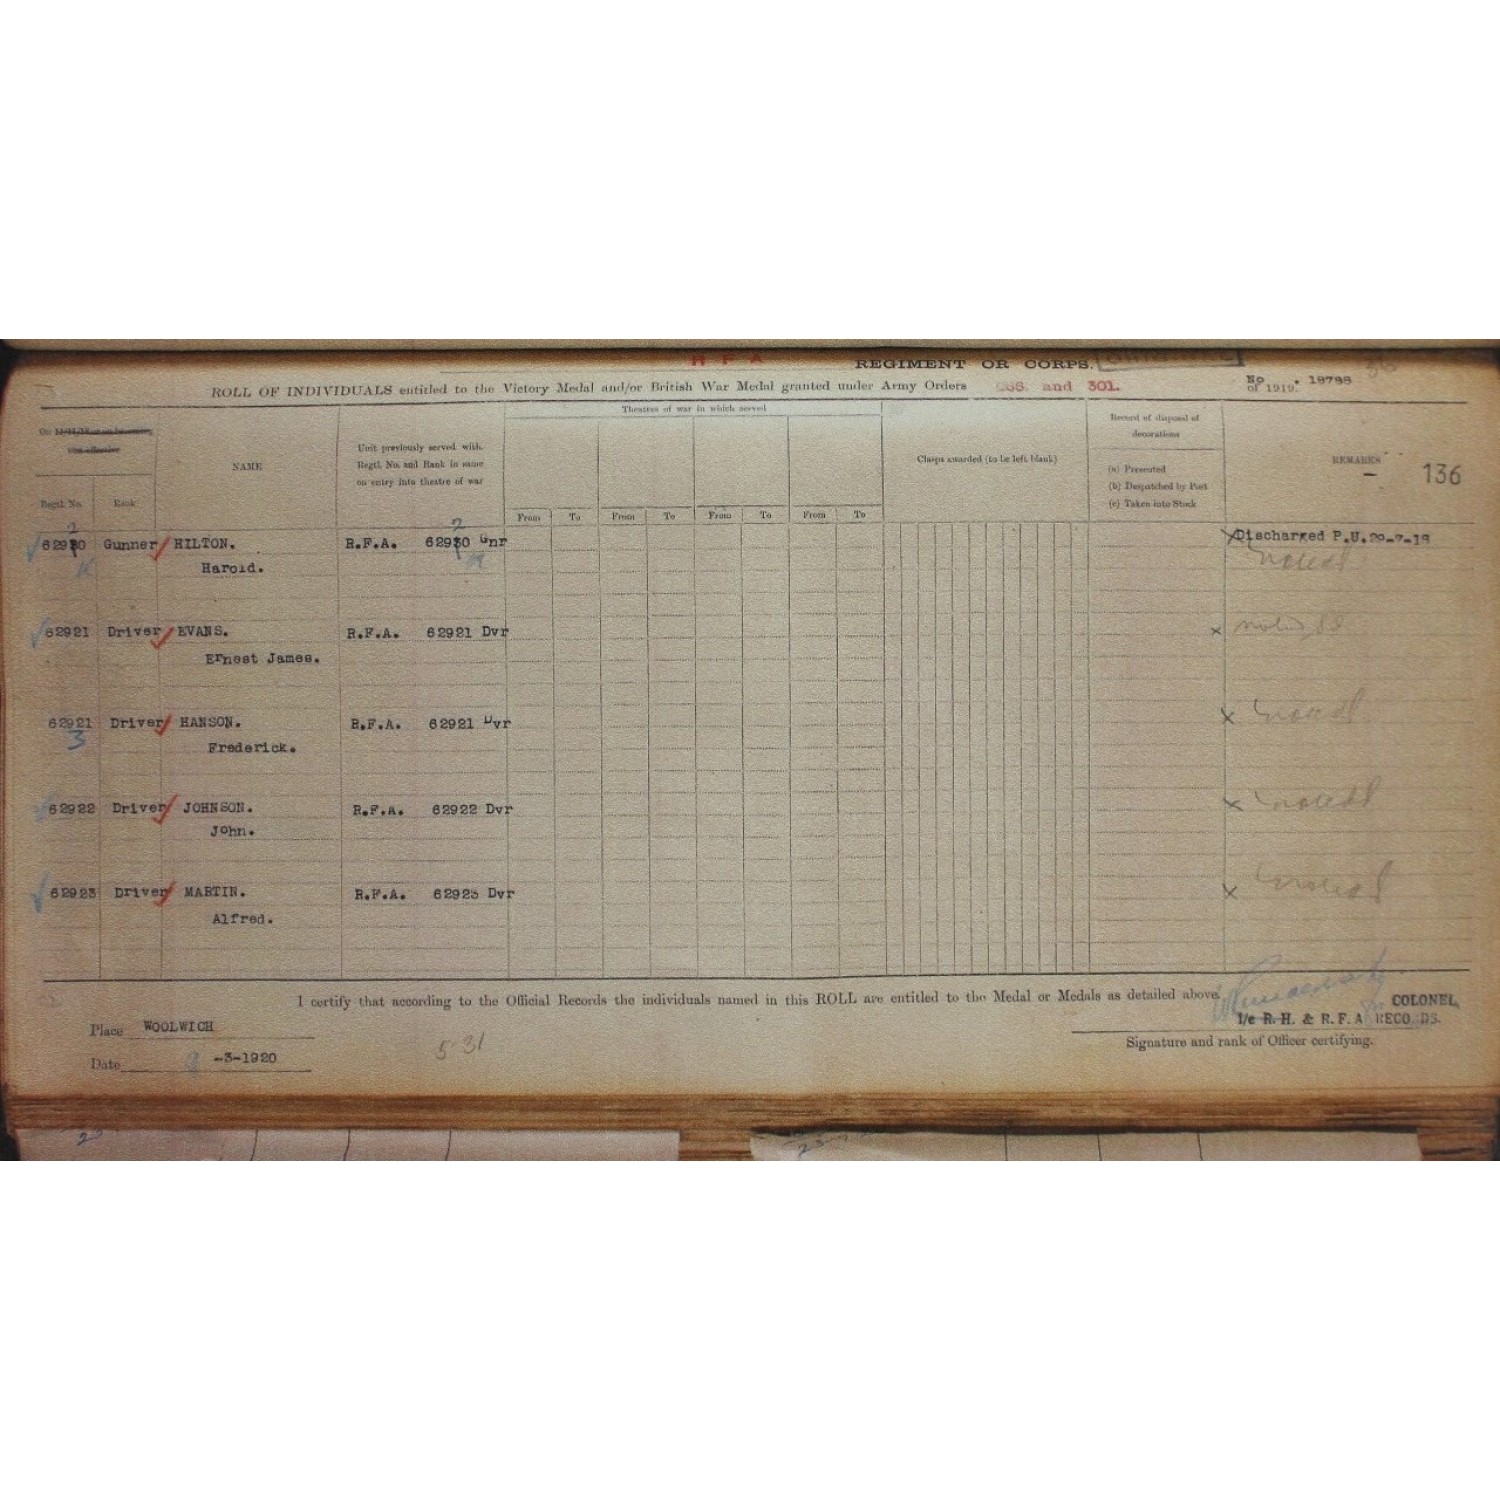 R F A REGIMENT OR CORPS.
ROLL OF INDIVIDUALS entitled to the Victory Medal and/or British War Medal granted under Army Orders and 301.
No of 1919. 19798
Theatres of war in which served
Record of disposal of decorations
On
NAME
Unit previously served with.
Regtl. No. and Rank in same
on entry into theatre of war
Clasps awarded (to be left blank)
(a) Presented
(b) Despatched by Post
(c) Taken into Stock
REMARKS
136
Regtl. No. Rank
From To From To From To From To
2 2
62920 Gunner HILTON. R.F.A. 62920 Gnr Discharged P.U.29-7-18
Harold. noted
62921 Driver EVANS. R.F.A. 62921 Dvr x
Ernest James.
62921 Driver HANSON. R.F.A. 62921 Dvr x noted
3 Frederick.
62922 Driver JOHNSON. R.F.A. 62922 Dvr x noted
John.
62923 Driver MARTIN. R.F.A. 62923 Dvr x noted
Alfred.
I certify that according to the Official Records the individuals named in this ROLL are entitled to the Medal or Medals as detailed above.
COLONEL,
Place WOOLWICH
I/c R.H. & R.F.A RECORDS.
Signature and rank of Officer certifying.
Date -3-1920
5 31